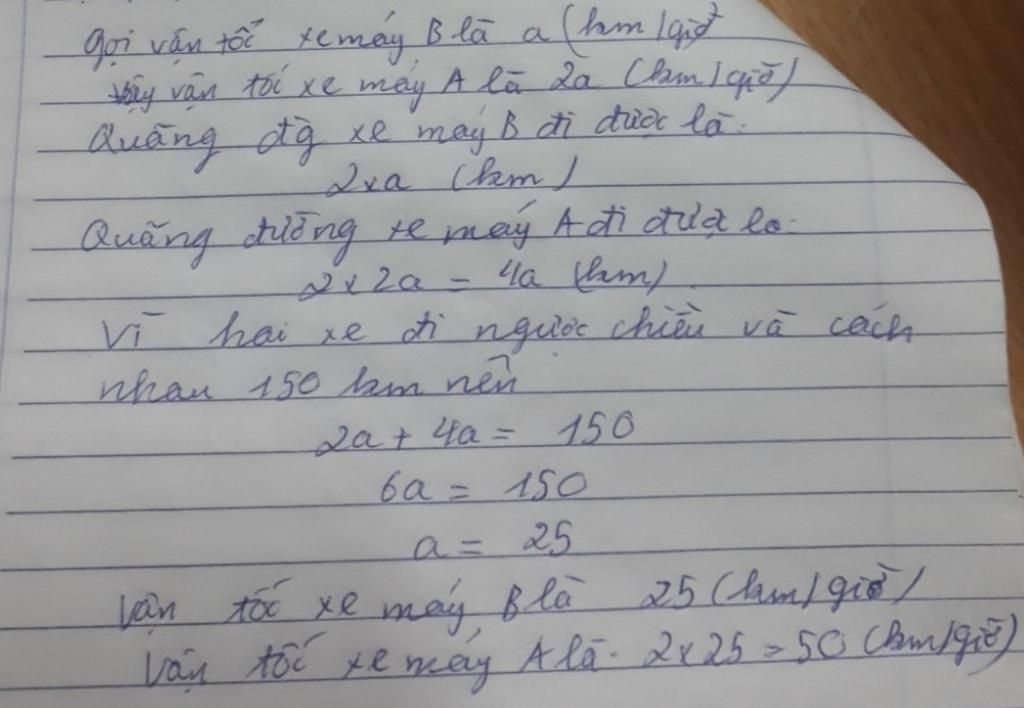 Gọi vận tốc xe máy B là a (km/giờ
vậy vận tốc xe máy A là 2a (km/giờ)
Quãng đg xe máy B đi được là:
2×a (km)
Quãng đường xe máy A đi được là:
2×2a = 4a (km)
Vì hai xe đi ngược chiều và cách
nhau 150 km nên
2a + 4a = 150
6a = 150
a = 25
Vận tốc xe máy B là 25 (km/giờ)
Vận tốc xe máy A là: 2×25 = 50 (km/giờ)